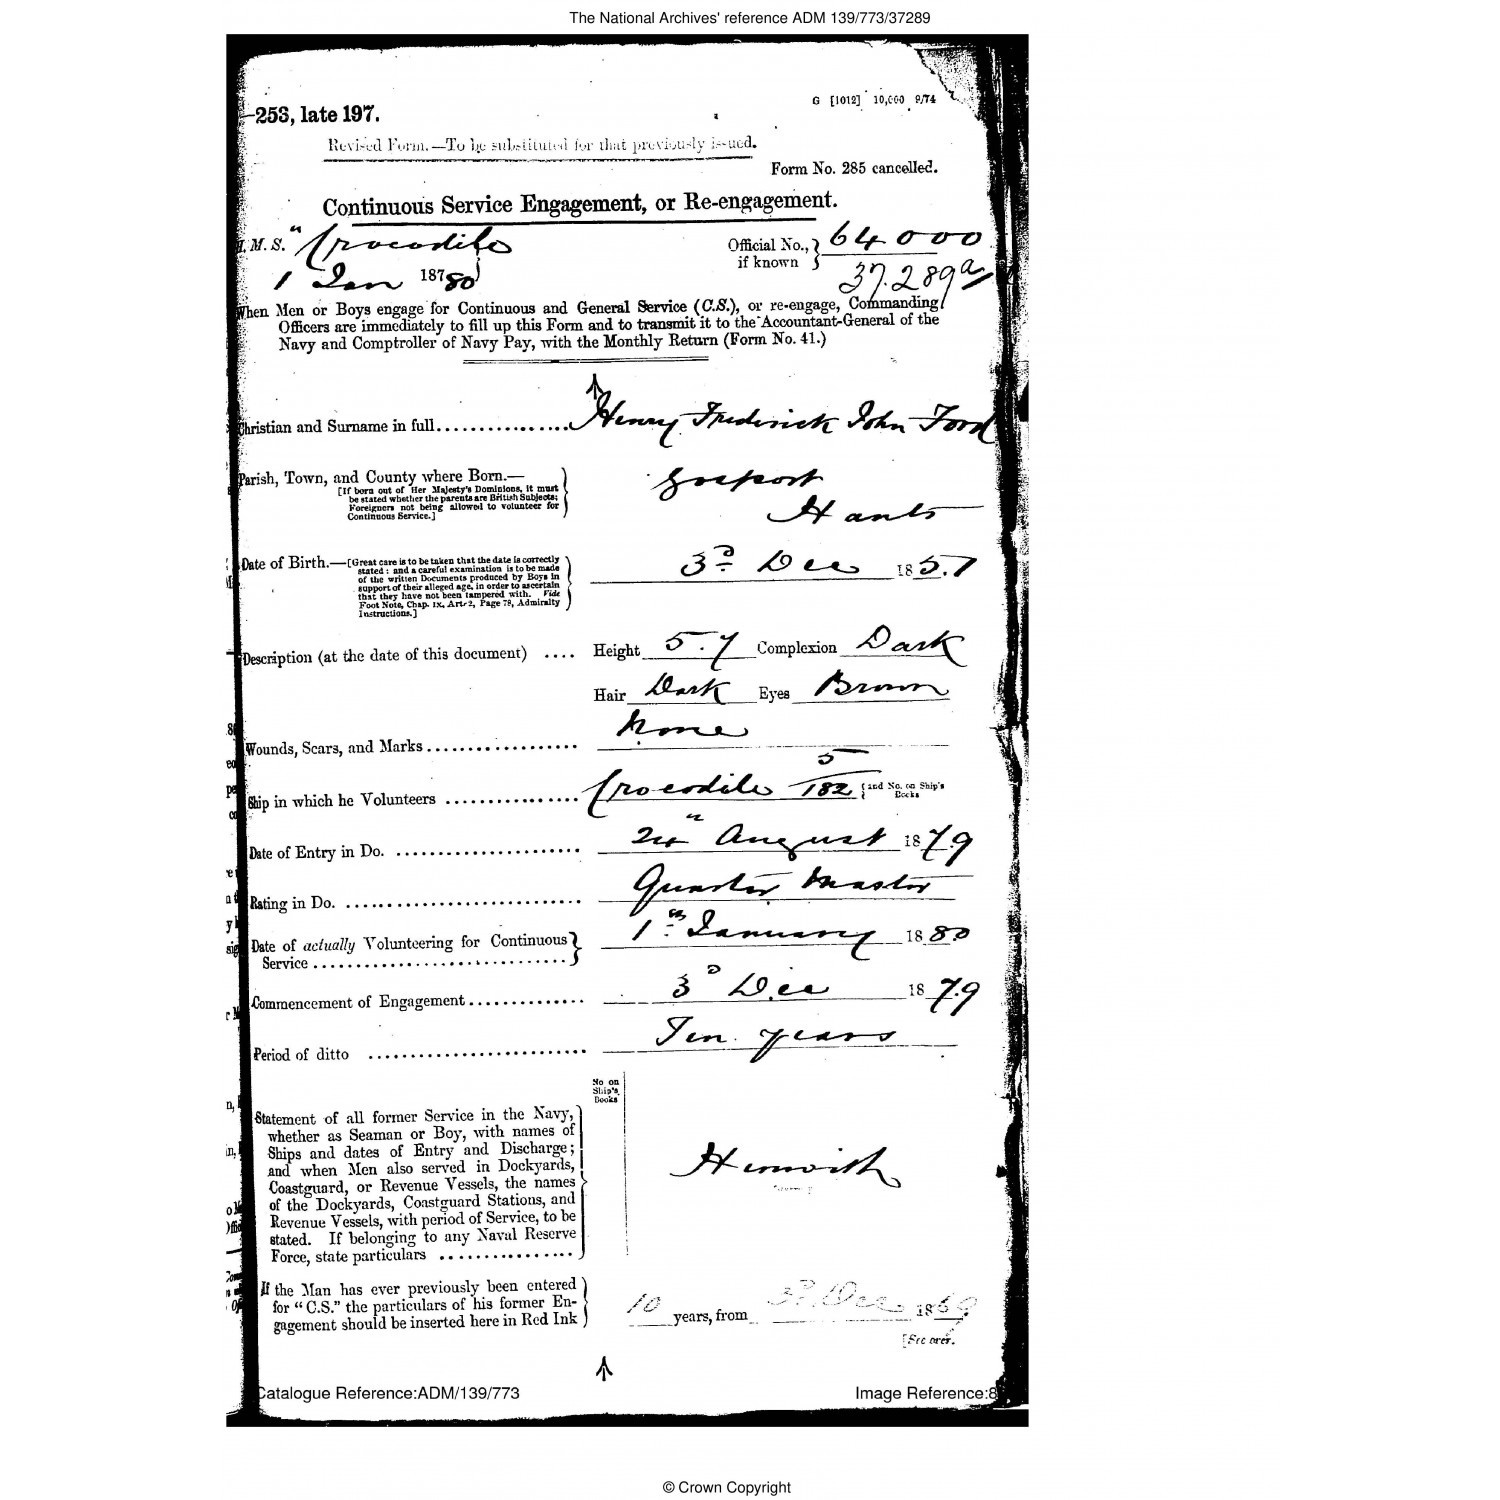 The National Archives' reference ADM 139/773/37289
253, late 197.
G [1012] 10,000 9/74
Revised Form.—To be substituted for that previously issued.
Form No. 285 cancelled.
Continuous Service Engagement, or Re-engagement.
H.M.S. "Crocodile"
Official No., if known } 64000
1 Jan 18780
37.289a
When Men or Boys engage for Continuous and General Service (C.S.), or re-engage, Commanding
Officers are immediately to fill up this Form and to transmit it to the Accountant-General of the
Navy and Comptroller of Navy Pay, with the Monthly Return (Form No. 41.)
Christian and Surname in full................ Henry Frederick John Ford
Parish, Town, and County where Born.— Gosport
[If born out of Her Majesty's Dominions, it must
be stated whether the parents are British Subjects;
Foreigners not being allowed to volunteer for
Continuous Service.]
Hants
Date of Birth.—[Great care is to be taken that the date is correctly
stated: and a careful examination is to be made
of the written Documents produced by Boys in
support of their alleged age, in order to ascertain
that they have not been tampered with. Vide
Foot Note, Chap. ix, Art. 2, Page 78, Admiralty
Instructions.]
3d Dec 1857
Description (at the date of this document) .... Height 5.7 Complexion Dark
Hair Dark Eyes Brown
Wounds, Scars, and Marks.................. None
Ship in which he Volunteers ................ Crocodile 5/182 {and No. on Ship's Books
Date of Entry in Do. ...................... 24th August 1879
Rating in Do. ............................ Quarter Master
Date of actually Volunteering for Continuous
Service............................ } 1st January 1880
Commencement of Engagement.............. 3d Dec 1879
Period of ditto .......................... Ten years
No on
Ship's
Books
Statement of all former Service in the Navy,
whether as Seaman or Boy, with names of
Ships and dates of Entry and Discharge;
and when Men also served in Dockyards,
Coastguard, or Revenue Vessels, the names
of the Dockyards, Coastguard Stations, and
Revenue Vessels, with period of Service, to be
stated. If belonging to any Naval Reserve
Force, state particulars ................
Herewith
If the Man has ever previously been entered
for "C.S." the particulars of his former En-
gagement should be inserted here in Red Ink
10 years, from 3d Dec 1869
[See over.
Catalogue Reference:ADM/139/773
Image Reference:8
© Crown Copyright